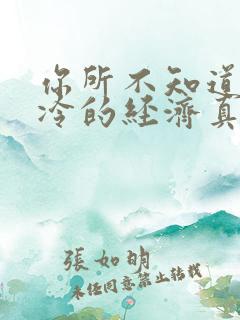 你所不知道
冷的經濟真
張如明
未經同意禁止轉載